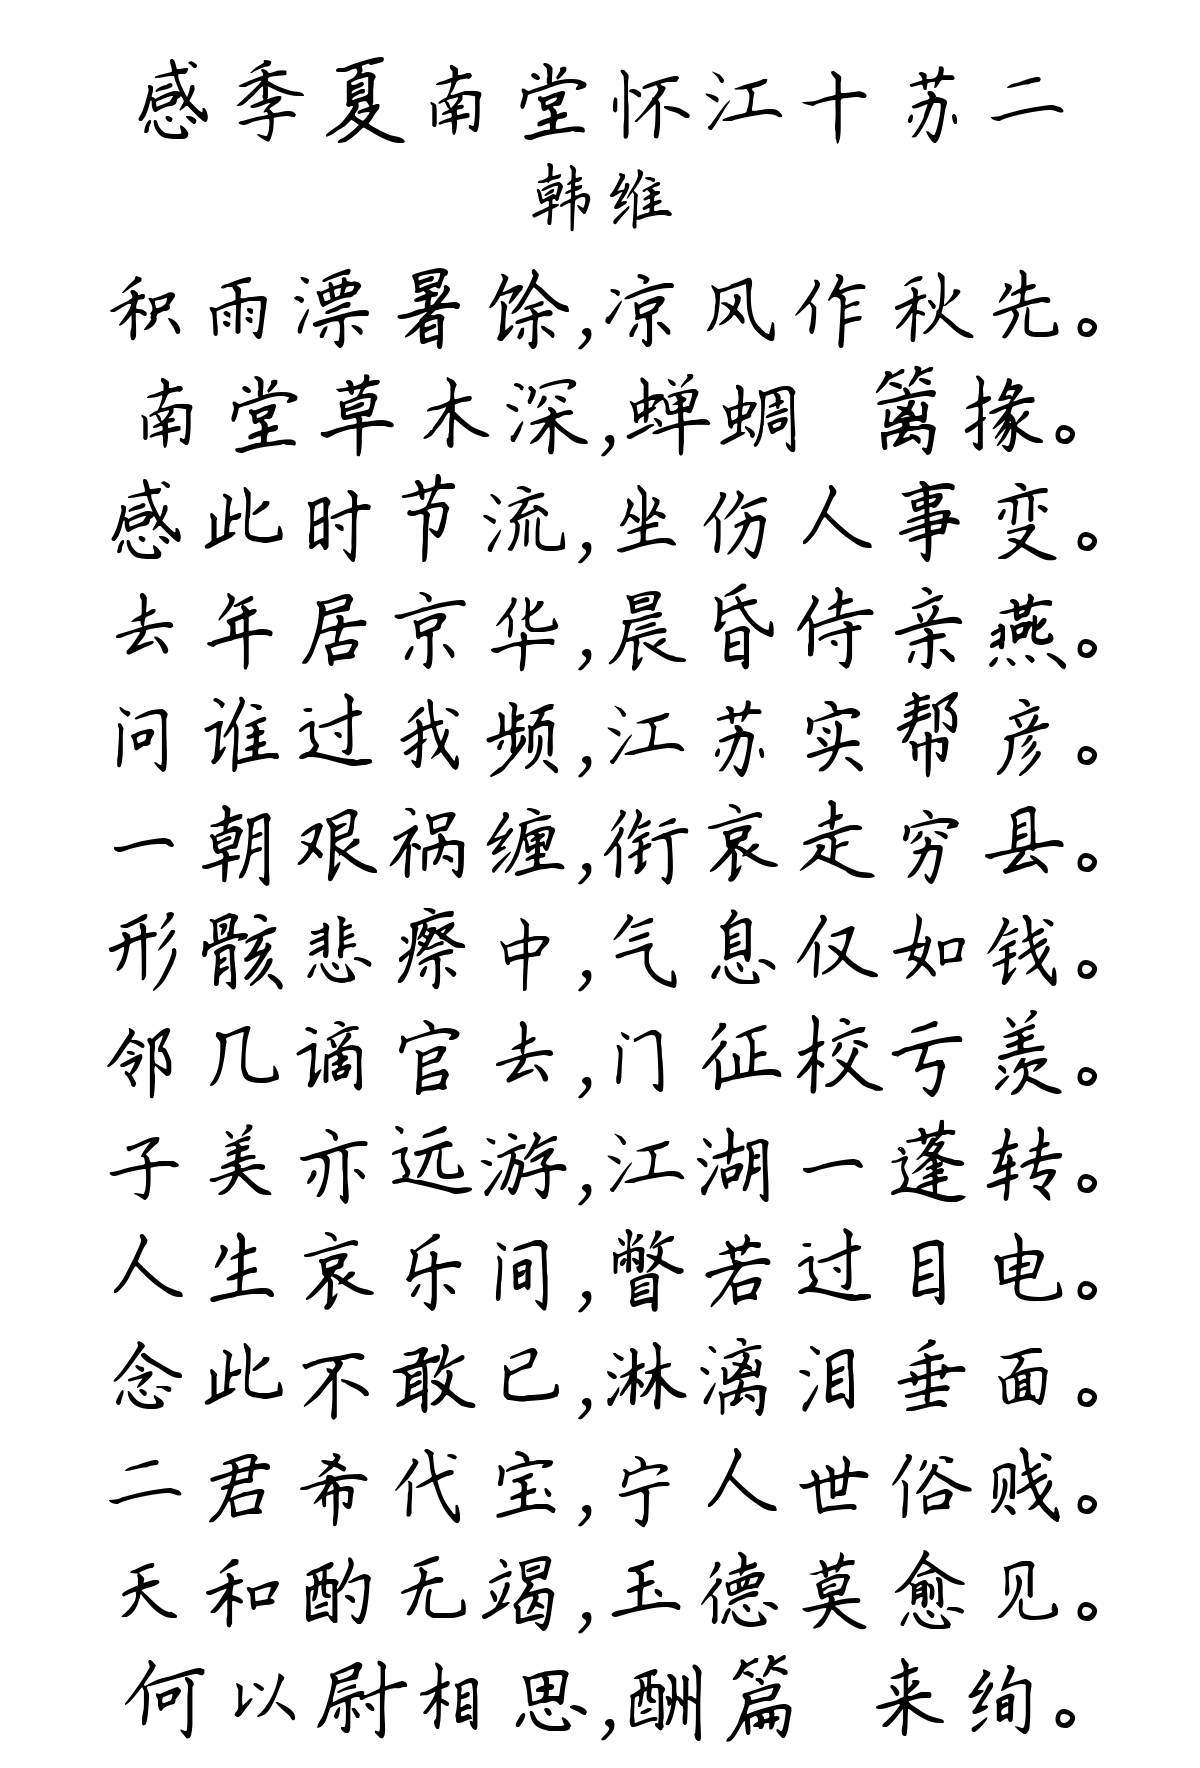 感季夏南堂怀江十苏二
韩维
积雨漂暑馀,凉风作秋先。
南堂草木深,蝉蜩 篱掾。
感此时节流,坐伤人事变。
去年居京华,晨昏侍亲燕。
问谁过我频,江苏实帮彦。
一朝艰祸缠,衔哀走穷县。
形骸悲瘵中,气息仅如钱。
邻几谪官去,门征校亏羡。
子美亦远游,江湖一蓬转。
人生哀乐间,瞥若过目电。
念此不敢已,淋漓泪垂面。
二君希代宝,宁人世俗贱。
天和酌无竭,玉德莫愈见。
何以尉相思,酬篇 来绚。